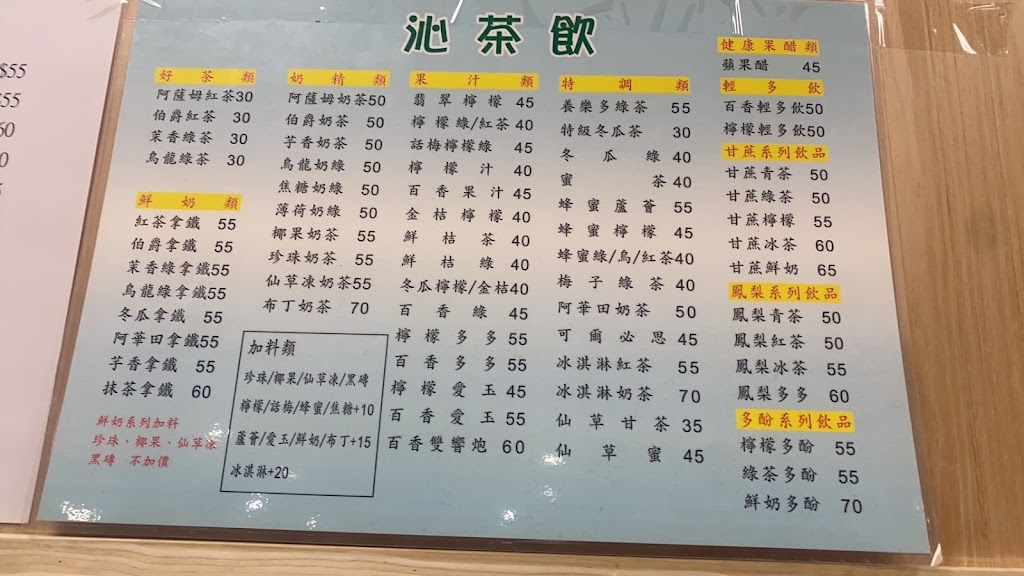 沁茶飲
$55
$55
60
好茶類
阿薩姆紅茶30
伯爵紅茶 30
茉香綠茶 30
烏龍綠茶 30
鮮奶類
紅茶拿鐵 55
伯爵拿鐵 55
茉香綠拿鐵55
烏龍綠拿鐵55
冬瓜拿鐵 55
阿華田拿鐵 55
芋香拿鐵 55
抹茶拿鐵 60
鮮奶系列加料
珍珠、椰果、仙草凍
黑磚 不加價
奶精類
阿薩姆奶茶50
伯爵奶茶 50
芋香奶茶 50
烏龍奶綠 50
焦糖奶綠 50
薄荷奶綠 50
椰果奶茶 55
珍珠奶茶 55
仙草凍奶茶55
布丁奶茶 70
加料類
珍珠/椰果/仙草凍/黑磚
檸檬/話梅/蜂蜜/焦糖+10
蘆薈/愛玉/鮮奶/布丁+15
冰淇淋+20
果汁類
翡翠檸檬 45
檸檬綠/紅茶40
話梅檸檬綠 45
檸檬汁 40
百香果汁 45
金桔檸檬 40
鮮桔茶 40
鮮桔綠 40
冬瓜檸檬/金桔40
百香綠 45
檸檬多多 55
百香多多 55
檸檬愛玉 45
百香愛玉 55
百香雙響炮 60
特調類
養樂多綠茶 55
特級冬瓜茶 30
冬瓜綠 40
蜜茶 40
蜂蜜蘆薈 55
蜂蜜檸檬 45
蜂蜜綠/烏/紅茶40
梅子綠茶 40
阿華田奶茶 50
可爾必思 45
冰淇淋紅茶 55
冰淇淋奶茶 70
仙草甘茶 35
仙草蜜 45
健康果醋類
蘋果醋 45
輕多飲
百香輕多飲50
檸檬輕多飲50
甘蔗系列飲品
甘蔗青茶 50
甘蔗綠茶 50
甘蔗檸檬 55
甘蔗冰茶 60
甘蔗鮮奶 65
鳳梨系列飲品
鳳梨青茶 50
鳳梨紅茶 50
鳳梨冰茶 55
鳳梨多多 60
多酚系列飲品
檸檬多酚 55
綠茶多酚 55
鮮奶多酚 70